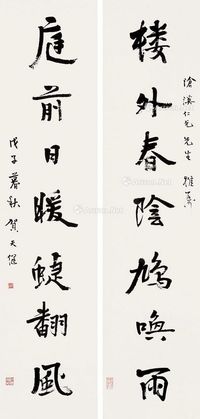 滄濱仁兄先生 雅屬
楼外春陰鳩喚雨
庭前日暖蜨翻風
戊子暮秋 賀天健